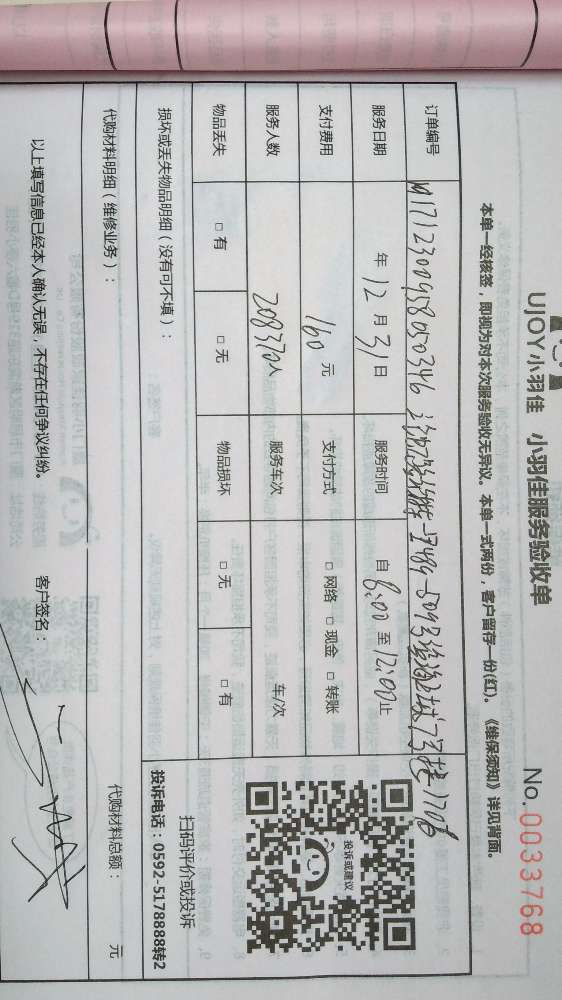 UJOY小羽佳 小羽佳服务验收单 No. 0033768
本单一经核签，即视为对本次服务验收无异议。本单一式两份，客户留存一份(红)。《维保须知》详见背面。
订单编号 W1712300958050346
服务日期 年 12 月 31 日 服务时间 自 8:00 至 12:00 止
支付费用 160 元 支付方式 □ 网络 □ 现金 □ 转账
服务人数 人 服务车次 车/次
物品丢失 □ 有 □ 无 物品损坏 □ 无 □ 有
投诉或建议
扫码评价或投诉
投诉电话：0592-5178888转2
损坏或丢失物品明细（没有可不填）：
代购材料明细（维修业务）： 代购材料总额： 元
以上填写信息已经本人确认无误，不存在任何争议纠纷。 客户签名：